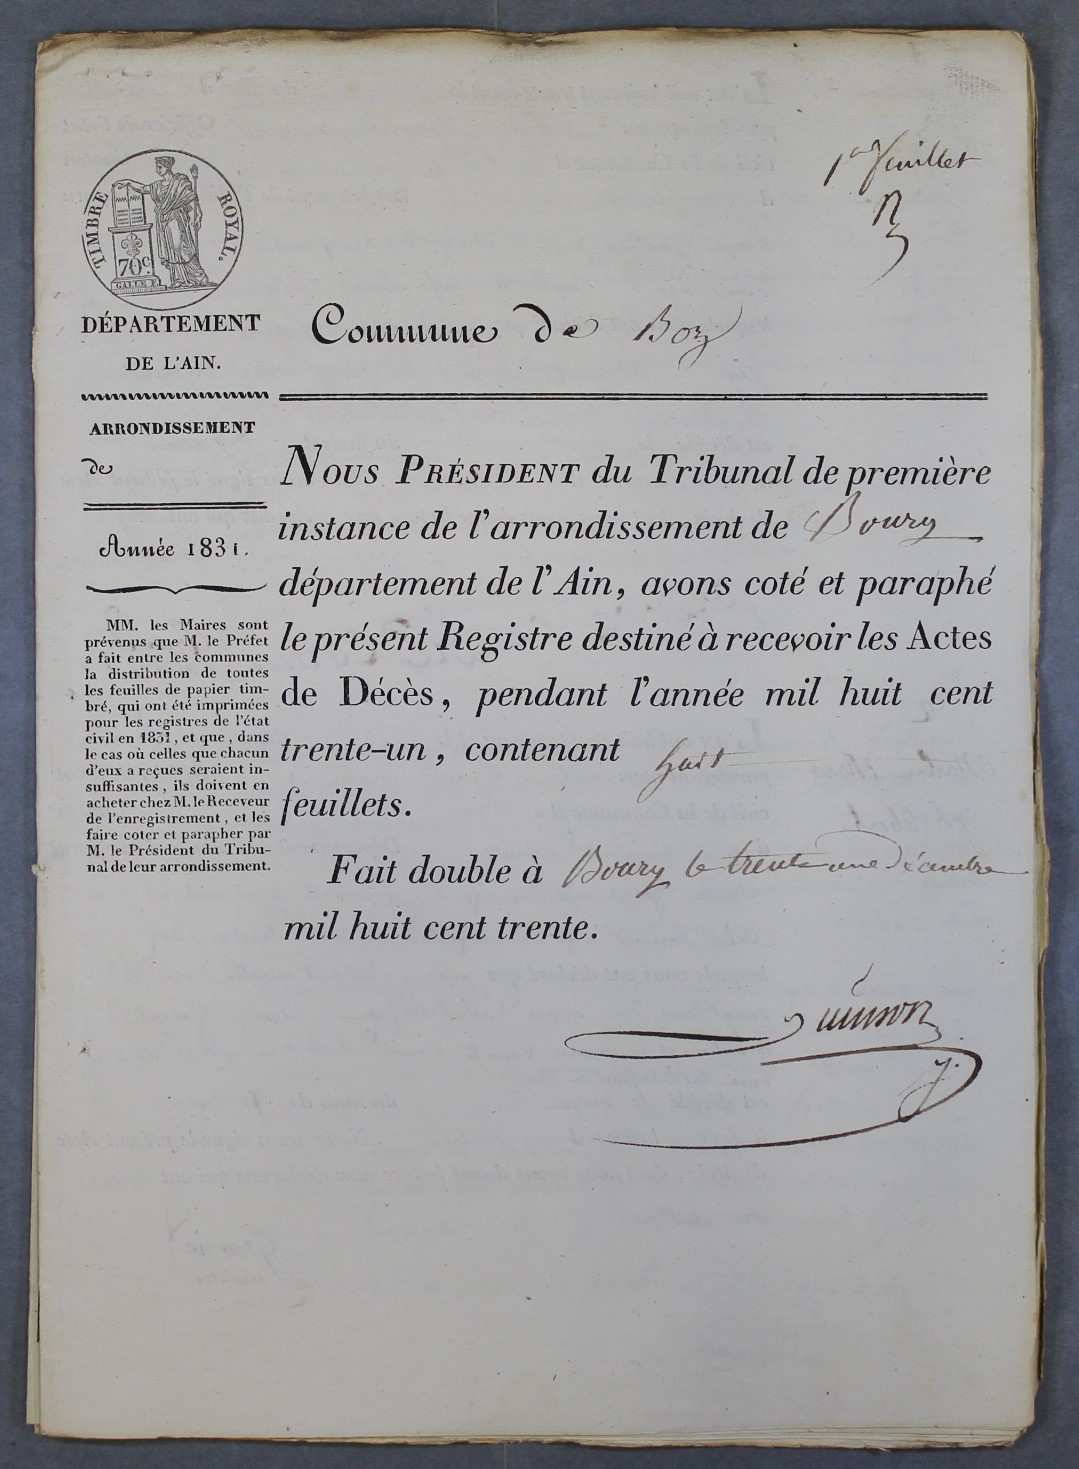 1er feuillet
TIMBRE ROYAL.
70c.
GALLE F.
DÉPARTEMENT
DE L'AIN.
Commune de Boz
ARRONDISSEMENT
de
Année 1831.
MM. les Maires sont
prévenus que M. le Préfet
a fait entre les communes
la distribution de toutes
les feuilles de papier tim-
bré, qui ont été imprimées
pour les registres de l'état
civil en 1831, et que, dans
le cas où celles que chacun
d'eux a reçues seraient in-
suffisantes, ils doivent en
acheter chez M. le Receveur
de l'enregistrement, et les
faire coter et parapher par
M. le Président du Tribu-
nal de leur arrondissement.
NOUS PRÉSIDENT du Tribunal de première
instance de l'arrondissement de Bourg
département de l'Ain, avons coté et paraphé
le présent Registre destiné à recevoir les Actes
de Décès, pendant l'année mil huit cent
trente-un, contenant huit
feuillets.
Fait double à Bourg le trente une Décembre
mil huit cent trente.